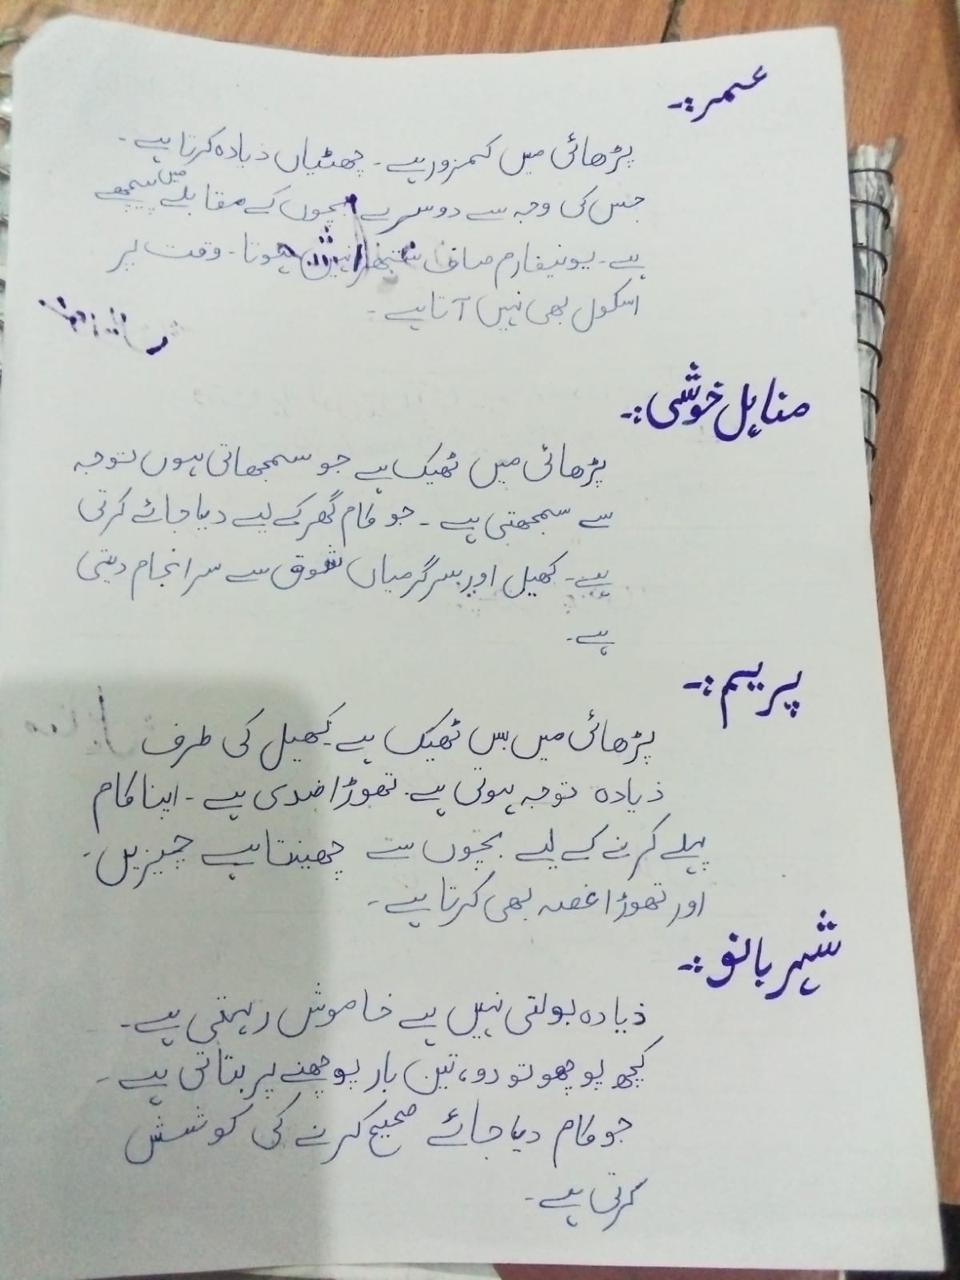 عمر:-
پڑھائی میں کمزور ہے۔ چھٹیاں ذیادہ کرتا ہے۔
جس کی وجہ سے دوسرے بچوں کے مقابلے میں پیچھے
ہے۔ یونیفارم صاف نہیں ہوتا۔ وقت پر
اسکول بھی نہیں آتا ہے۔
مناہل خوشی:-
پڑھائی میں ٹھیک ہے جو سمجھاتی ہوں توجہ
سے سمجھتی ہے۔ جو کام گھر کے لیے دیا جائے کرتی
ہے۔ کھیل اور سرگرمیاں شوق سے سرانجام دیتی
ہے۔
پریم:-
پڑھائی میں بس ٹھیک ہے کھیل کی طرف
ذیادہ توجہ ہوتی ہے۔ تھوڑا ضدی ہے۔ اپنا کام
پہلے کرنے کے لیے بچوں سے چھینتا ہے چیزیں۔
اور تھوڑا غصہ بھی کرتا ہے۔
شہر بانو:-
ذیادہ بولتی نہیں ہے خاموش رہتی ہے۔
کچھ پوچھو تو دو، تین بار پوچھنے پر بتاتی ہے۔
جو کام دیا جائے صحیح کرنے کی کوشش
کرتی ہے۔